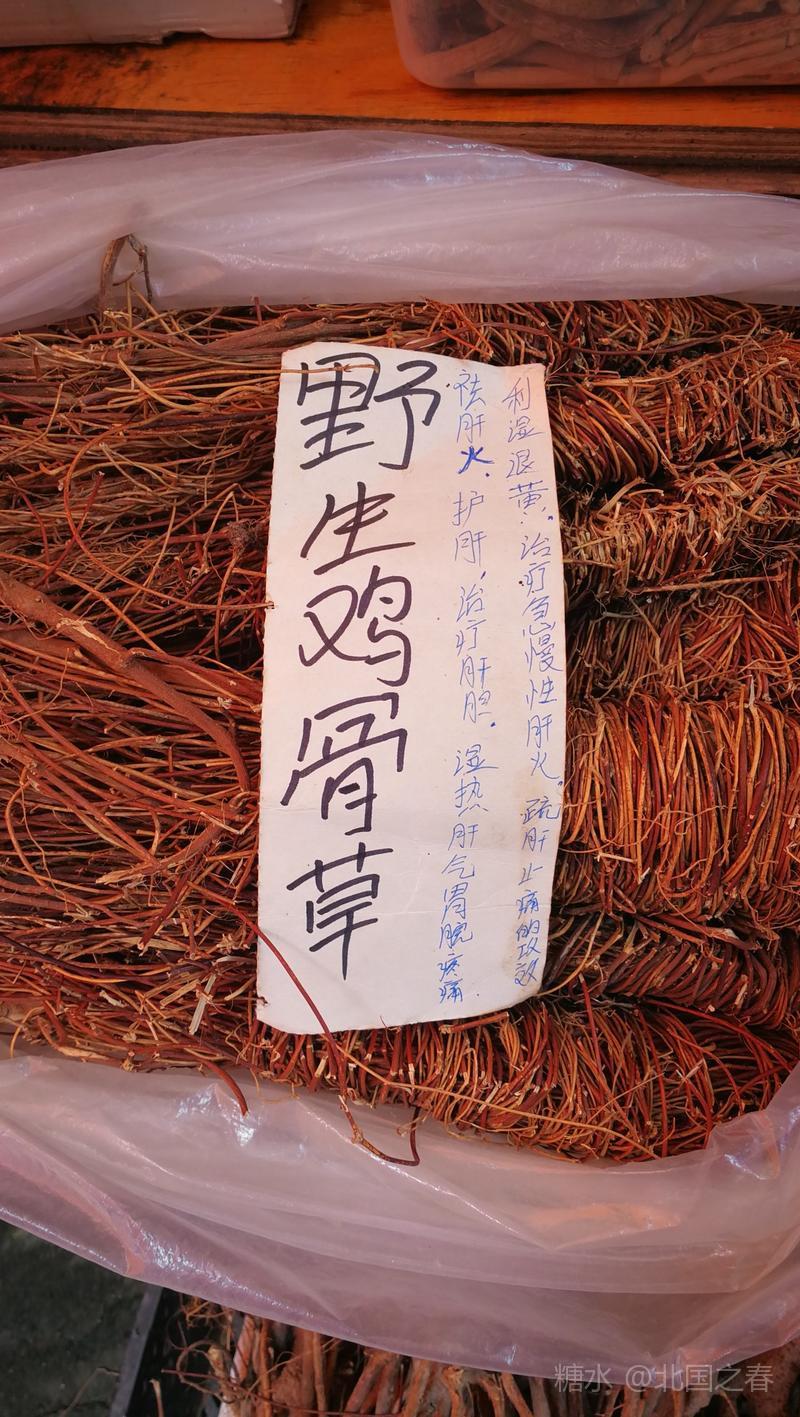 野生鸡骨草
祛肝火、护肝，治疗肝胆．湿热肝气胃脘疼痛．
利湿退黄．治疗急慢性肝火，疏肝止痛的攻效
糖水 @北国之春